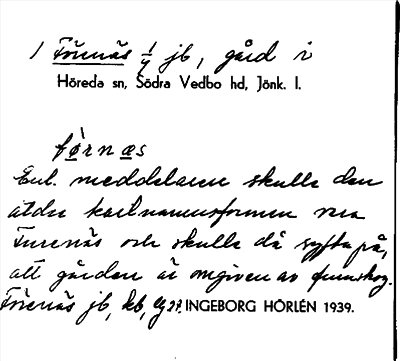 1 Förenäs 1/4 jb, gård i
Höreda sn, Södra Vedbo hd, Jönk. l.
fö̀rnæs
Enl. meddelaren skulle den
äldre kartnamnsformen vara
Furenäs och skulle då syfta på,
att gården är omgiven av furuskog.
Förenäs jb, kb, INGEBORG HÖRLÉN 1939.